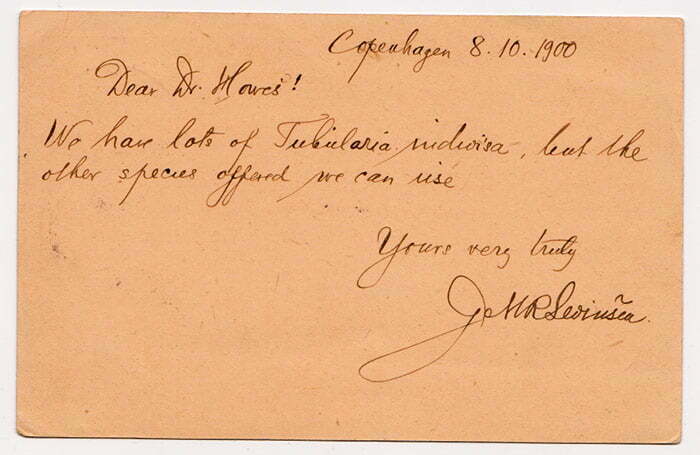 Copenhagen 8.10.1900
Dear Dr. Howes!
We have lots of Tubularia indivisa, but the
other species offered we can use
Yours very truly
J M R Levinsen.